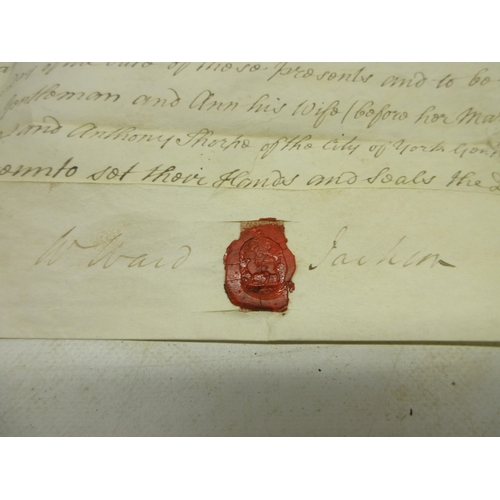 of the date of these presents and to be
Gentleman and Ann his Wife (before her Mar
and Anthony Thorpe of the City of York Gent
eunto set their Hands and Seals the
W Ward Jackson